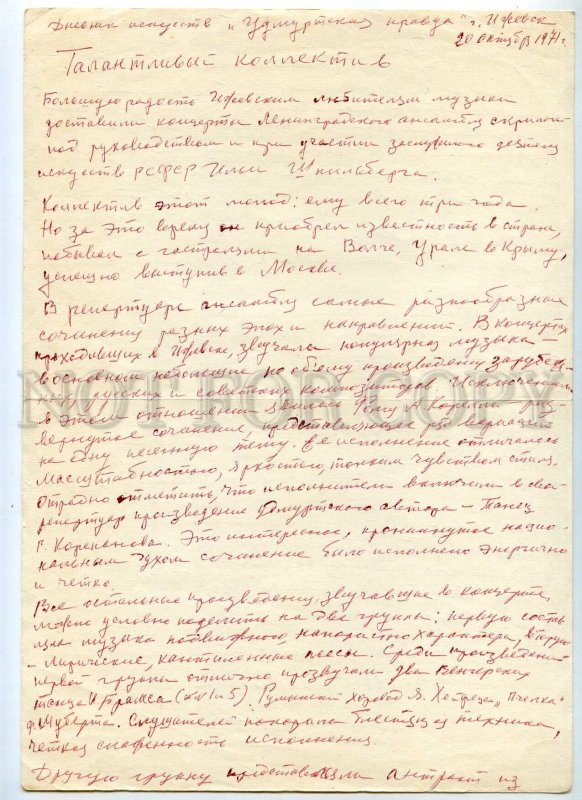 Дневник искусств „Удмуртская правда" г. Ижевск
20 октября 1971 г.
Талантливый коллектив
Большую радость Ижевским любителям музыки
доставили концерты Ленинградского ансамбля скрипачей
под руководством и при участии заслуженного деятеля
искусств РСФСР Ильи Шпильберга.
Коллектив этот молод: ему всего три года.
Но за это время он приобрел известность в стране,
побывал с гастролями на Волге, Урале в Крыму,
успешно выступив в Москве.
В репертуаре ансамбля самые разнообразные
сочинения разных эпох и направлений. В концертах
проходивших в Ижевске, звучала популярная музыка –
в основном небольшие по объему произведения зарубеж-
ных русских и советских композиторов. Исключением
в этом отношении явилась Фолия А. Корелли раз
вернутое сочинение, представляющее ряд вариаций
на одну песенную тему. Ее исполнение отличалось
масштабностью, яркостью, тонким чувством стиля.
Отрадно отметить, что исполнители включили в свой
репертуар произведение удмуртского автора – Танец
Г. Корепанова. Это интересное, проникнутое нацио-
нальным духом сочинение было исполнено энергично
и четко
Все остальные произведения, звучавшие в концерте,
можно условно поделить на две группы: первую состав
ляла музыка подвижного, напористого характера, вторую
– лирические, кантиленные пьесы. Среди произведений
первой группы отлично прозвучали два Венгерских
танца И Брамса (№№ 1 и 5). Румынский хоровод Я. Хейфеца „Пчелка"
Ф. Шуберта. Слушателей покорила блестящая техника,
четкая слаженность исполнения.
Другую группу представляли антракт из
NOT FOR COPY